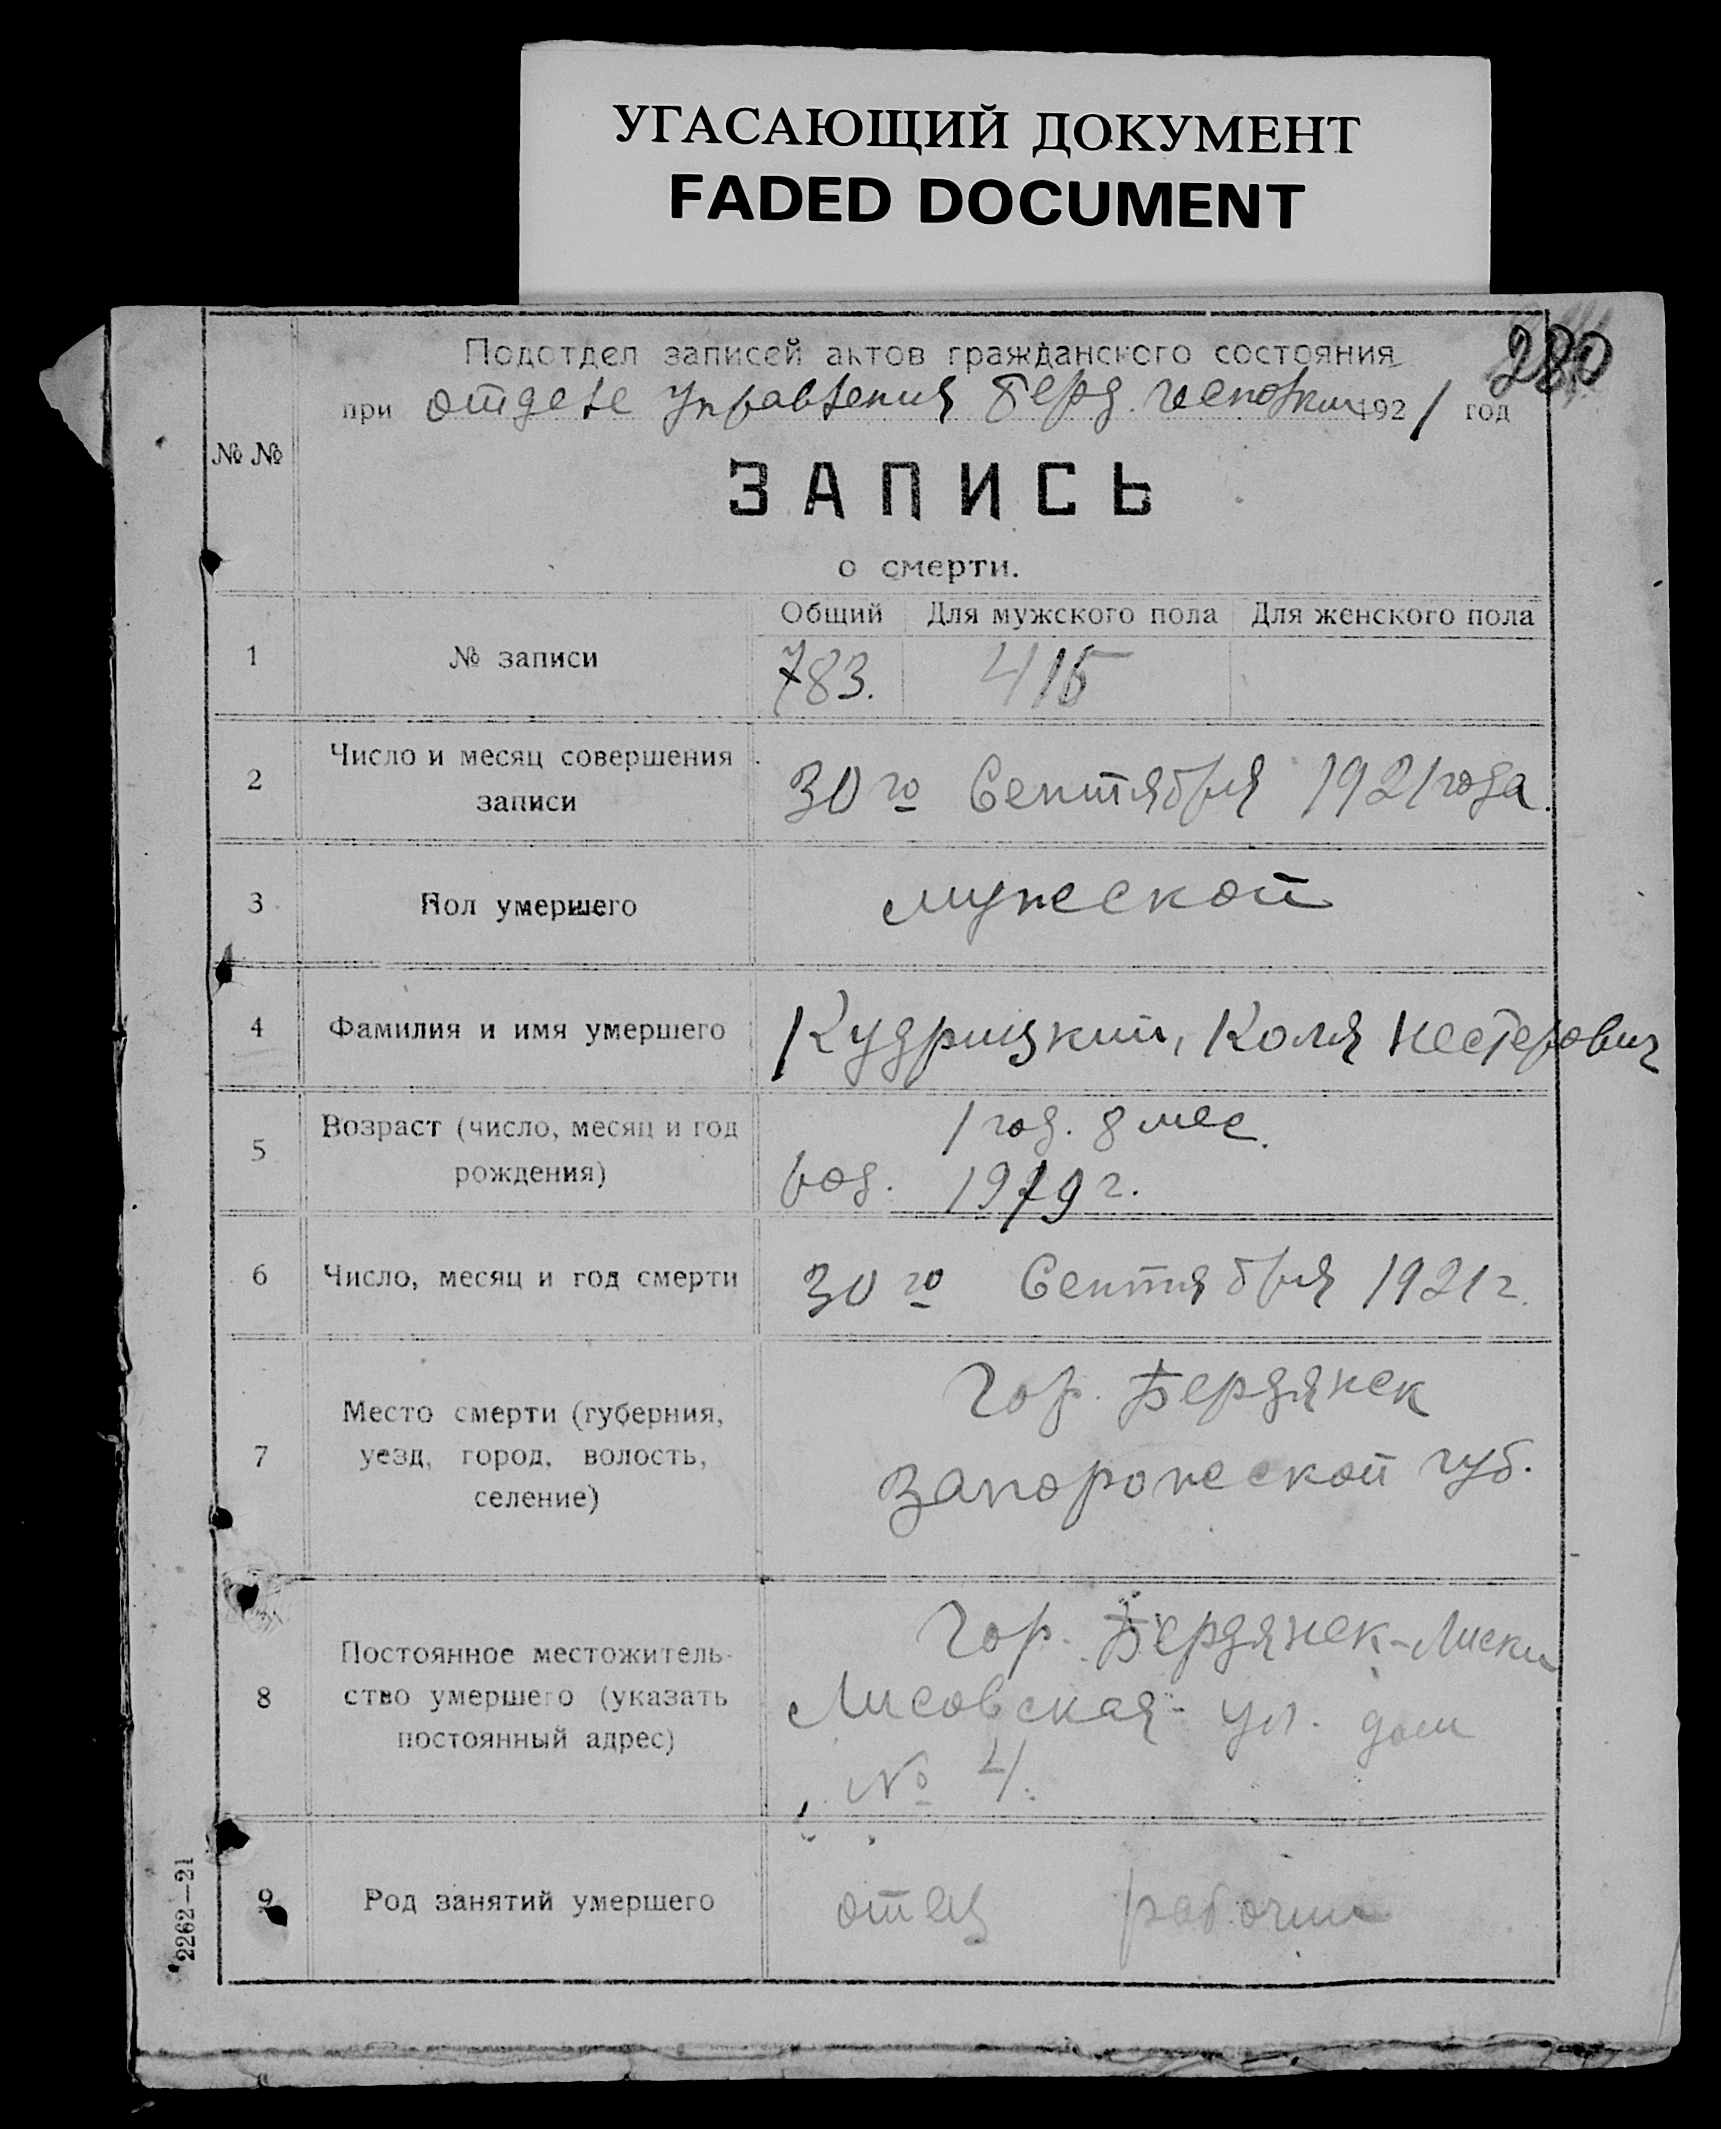 УГАСАЮЩИЙ ДОКУМЕНТ
FADED DOCUMENT
280
Подотдел записей актов гражданского состояния
при отделе Управления Берд. исполкома 1921 год
№ №
ЗАПИСЬ
о смерти.
Общий Для мужского пола Для женского пола
1 № записи 783. 415
2 Число и месяц совершения
записи
30 го Сентября 1921 года.
3 Пол умершего мужской
4 Фамилия и имя умершего Кудрицкий, Коля Нестерович
5 Возраст (число, месяц и год
рождения)
1 год. 8 мес.
род. 1919 г.
6 Число, месяц и год смерти 30 го Сентября 1921 г.
7 Место смерти (губерния,
уезд, город, волость,
селение)
Гор. Бердянск
Запорожской губ.
8 Постоянное местожитель-
ство умершего (указать
постоянный адрес)
Гор. Бердянск-Лиски
Лисовская ул. дом
№ 4.
9 Род занятий умершего отец рабочий
2262—21